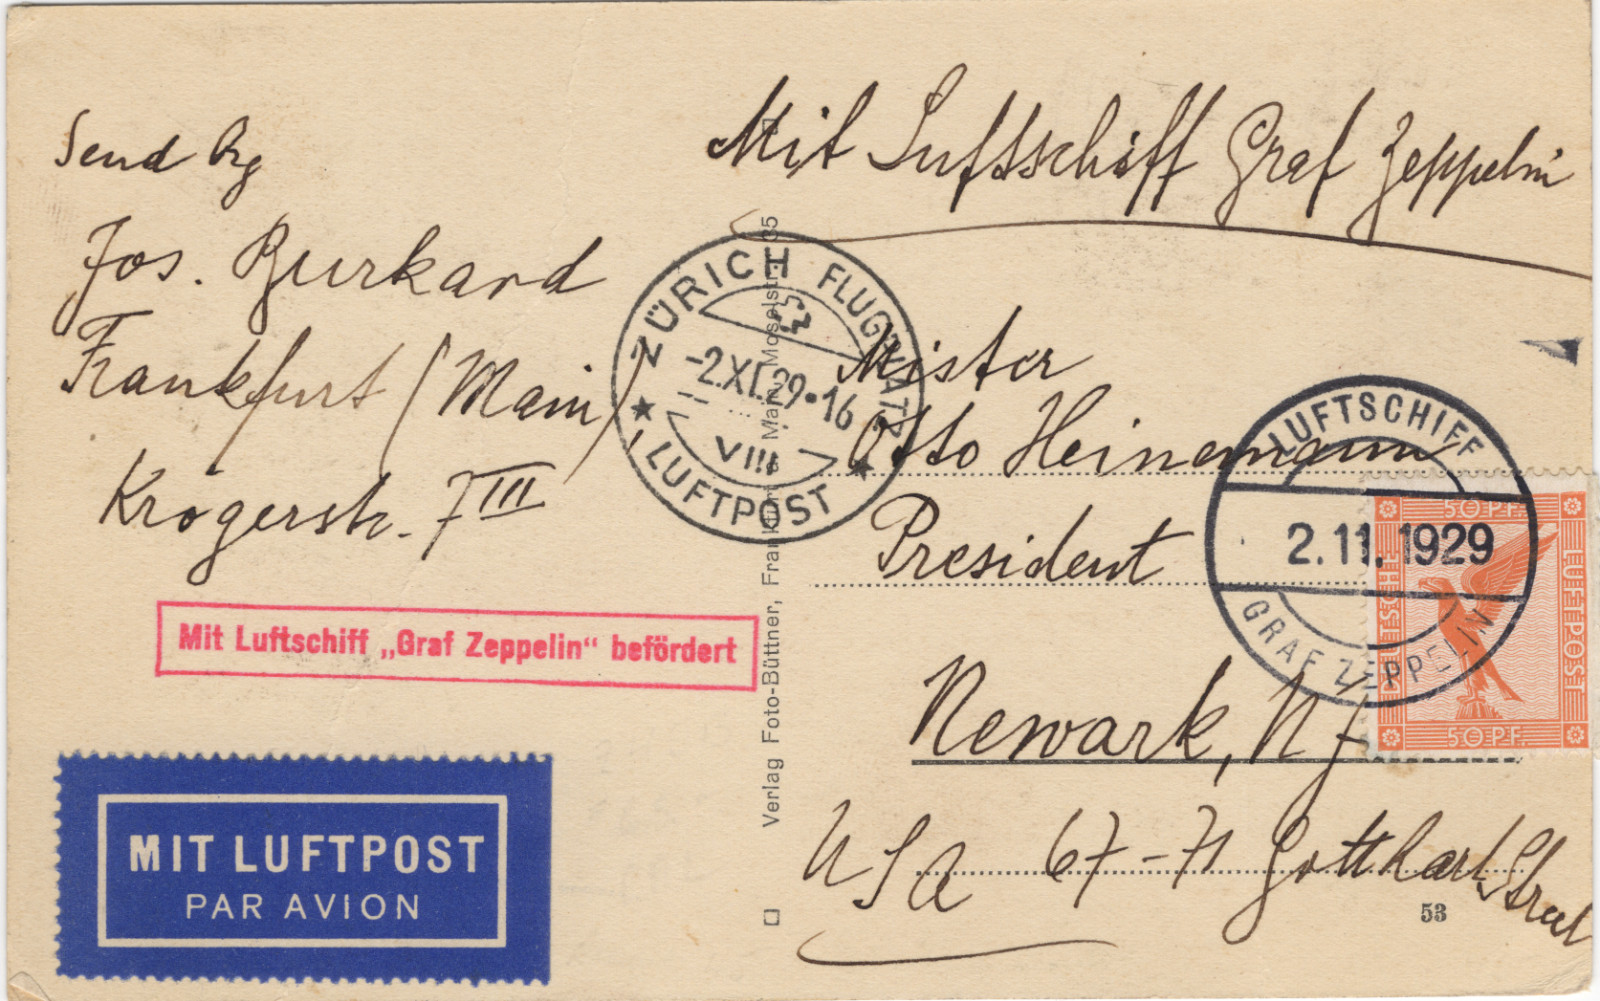 Send
Jos. Burkard
Frankfurt (Main)
Krögerstr. 7 III
Mit Luftschiff „Graf Zeppelin“ befördert
MIT LUFTPOST
PAR AVION
Verlag Foto-Büttner, Frankfurt a. Main, Moselstr. 35
ZÜRICH FLUGPLATZ
-2.XI.29.16
VIII
LUFTPOST
Mit Luftschiff Graf Zeppelin
Mister
Otto Heinemann
President
Newark, N J
USA 67-71 Gotthart Street
53
LUFTSCHIFF
2.11.1929
GRAF ZEPPELIN
50 PF.
DEUTSCHE
LUFTPOST
50 PF.